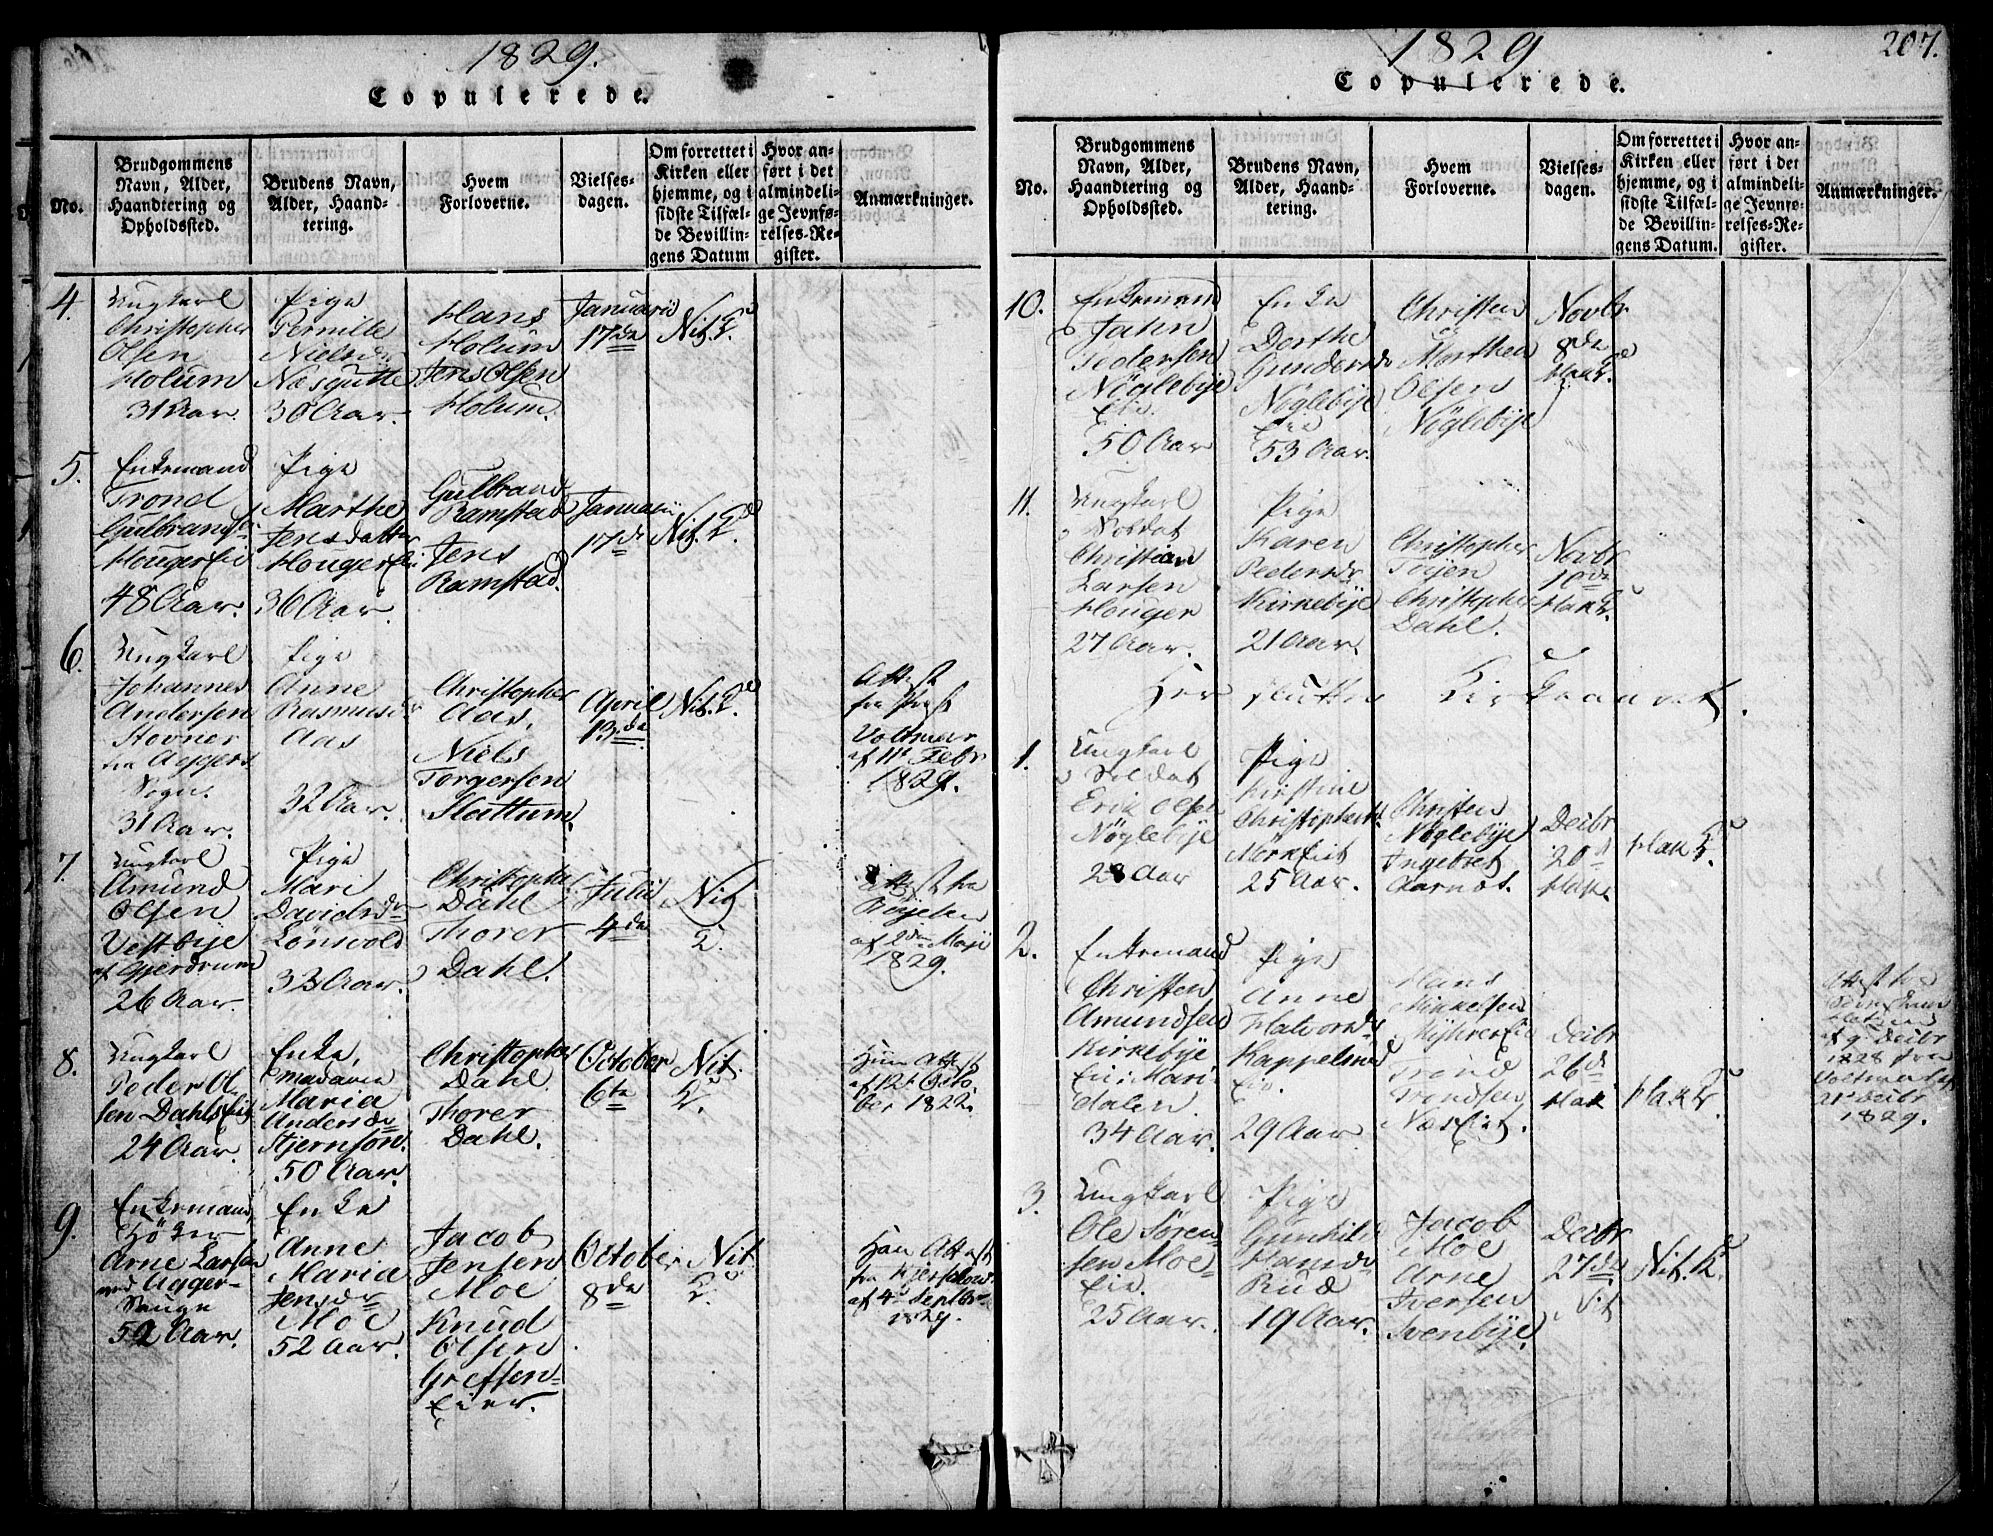 1829.
Copulerede.
No.
Brudgommens
Navn, Alder,
Haandtering og
Opholdssted.
Brudens Navn,
Alder, Haand-
tering.
Hvem
Forloverne.
Vielses-
dagen.
Om forrettet i
Kirken eller
hjemme, og i
sidste Tilfæl-
de Bevillin-
gens Datum
Hvor an-
ført i det
almindeli-
ge Jevnfø-
relses-Re-
gister.
Anmærkninger.
4.
Ungkarl
Christopher
Olsen
Holum
31 Aar.
Pige
Pernille
Nielsdr
Næsgutte
30 Aar.
Hans
Holum
Jens Olsen
Holum.
Januarii
17de
Nit. K.
5.
Enkemand
Trond
Gulbrandsen
Hougerei
48 Aar.
Pige
Marthe
Jensdatter
Hougerei
36 Aar.
Gulbrand
Ramstad
Jens
Ramstad.
Januarii
17de
Nit. K.
6.
Ungkarl
Johannes
Andersen
Stovner
fra Aggers
Sogn.
31 Aar.
Pige
Anne
Rasmusdr
Aas
32 Aar.
Christopher
Aas.
Niels
Torgersen
Slattum.
April
13de
Nit. K.
Attest
fra Præst
Voltmar
af 11t Febr
1829.
7.
Ungkarl
Amund
Olsen
Vestbye
af Gjerdrum
26 Aar.
Pige
Mari
Davidsdr
Lønsvold
33 Aar.
Christopher
Dahl
Thorer
Dahl.
Julii
4de
Nit
K.
Attest fra
af 2den Maji
1829.
8.
Ungkarl
Peder Ol-
sen Dahlseiet
24 Aar.
Enke,
Madame
Maria
Andersdr
Stjernson.
50 Aar.
Christopher
Dahl.
Thorer
Dahl.
October
6te
Nit.
K.
Attest
af 12t Octo
ber 1822.
9.
Enkemand,
Arne Larsen
ved Agger-
52 Aar.
Enke
Anne
Maria
Jensdr
Moe
52 Aar.
Jacob
Jensen
Moe
Knud
Olsen
Greffen-
Eier.
October
8de
Nit.
K.
Attest
fra Kjerschow
af 4de Septbr
1829.
1829
207.
Copulerede.
No.
Brudgommens
Navn, Alder,
Haandtering og
Opholdssted.
Brudens Navn,
Alder, Haand-
tering.
Hvem
Forloverne.
Vielses-
dagen.
Om forrettet i
Kirken eller
hjemme, og i
sidste Tilfæl-
de Bevillin-
gens Datum.
Hvor an-
ført i det
almindeli-
ge Jevnfø-
relses-Re-
gister.
Anmærkninger.
10.
Enkemand
Jahn
Pedersen
Nöglebye
Eie.
50 Aar
Enke
Dorthe
Gundersdr
Nöglebye
Eie
53 Aar.
Christen
Morthen
Olsen
Nöglebye
Novbr
8de
Hak K.
11.
Ungkarl
Soldat
Christian
Larsen
Houger
27 Aar.
Pige
Karen
Pedersdr
Kirkebye
21 Aar.
Christopher
Christopher
Dahl.
Novbr
10de
Hak K.
Her slutter Kirkeaaret.
1.
Ungkarl
Soldat
Erik Olsen
Nöglebye
28 Aar
Pige
Kirstine
Christophersdr.
Morkeiet
25 Aar.
Christen
Nöglebye
Ingebret
Aarnæs.
Decbr
20de
Hak
Hak K.
2.
Enkemand
Christen
Amundsen
Kirkebye
Eie i Mari-
dalen.
34 Aar.
Pige
Anne
Halvorsdr
Kappelsrud
Eie.
29 Aar
Hans
Mikkelsen
Myhrer Eie
Trond
Trondsen
Næs Eiet.
Decbr
26de
Hak
Hak K.
Attest fra
af 9. Decbr
1828 fra
Voltmar af
21de Decbr
1829.
3.
Ungkarl
Ole Sören-
sen Moe-
Eie.
25 Aar.
Pige
Gunhild
Hansdr
Rud
19 Aar.
Jacob
Moe
Arne
Iversen
Svenbye.
Decbr
27de
Nit
Nit. K.